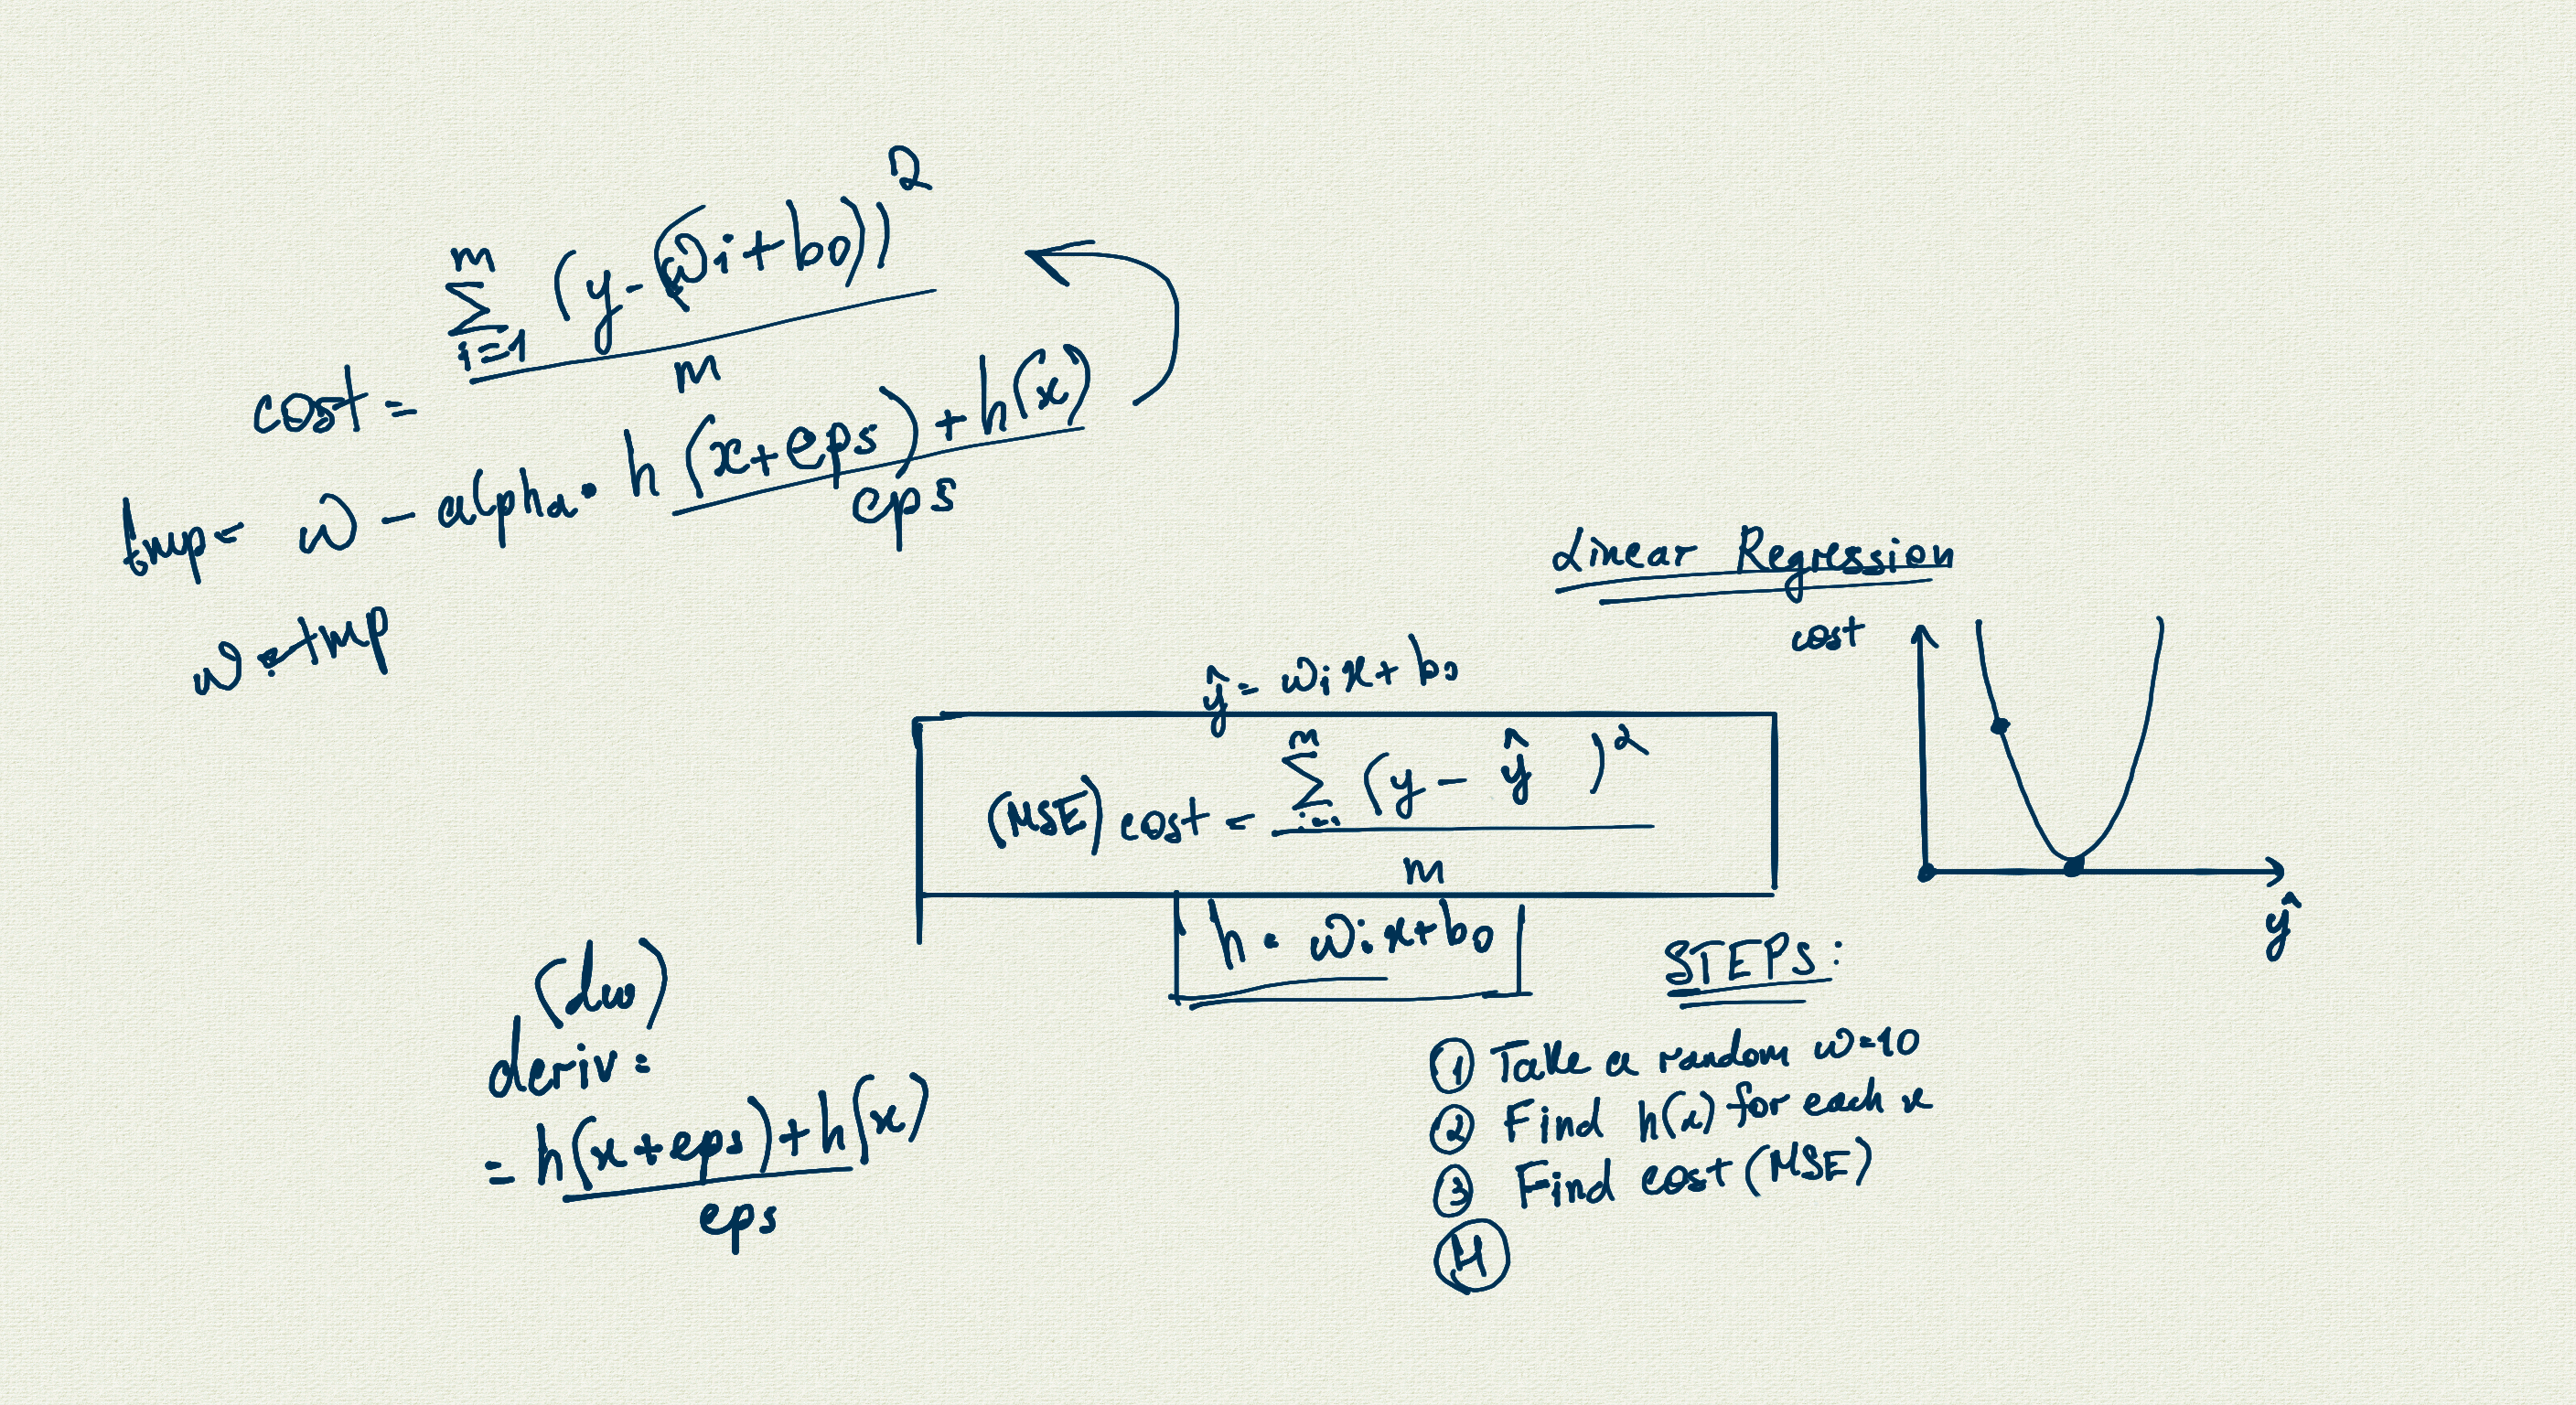 cost = \frac{\sum_{i=1}^{m} (y - (wi + b0))^2}{m}
tmp = w - alpha · \frac{h(x+eps) + h(x)}{eps}
w = tmp
Linear Regression
cost
ŷ
ŷ = wi x + b0
(MSE) cost = \frac{\sum_{i=1}^{m} (y - ŷ)^2}{m}
h = wi x + b0
(dw)
deriv =
= \frac{h(x+eps) + h(x)}{eps}
STEPS:
① Take a random w=10
② Find h(x) for each x
③ Find cost (MSE)
④